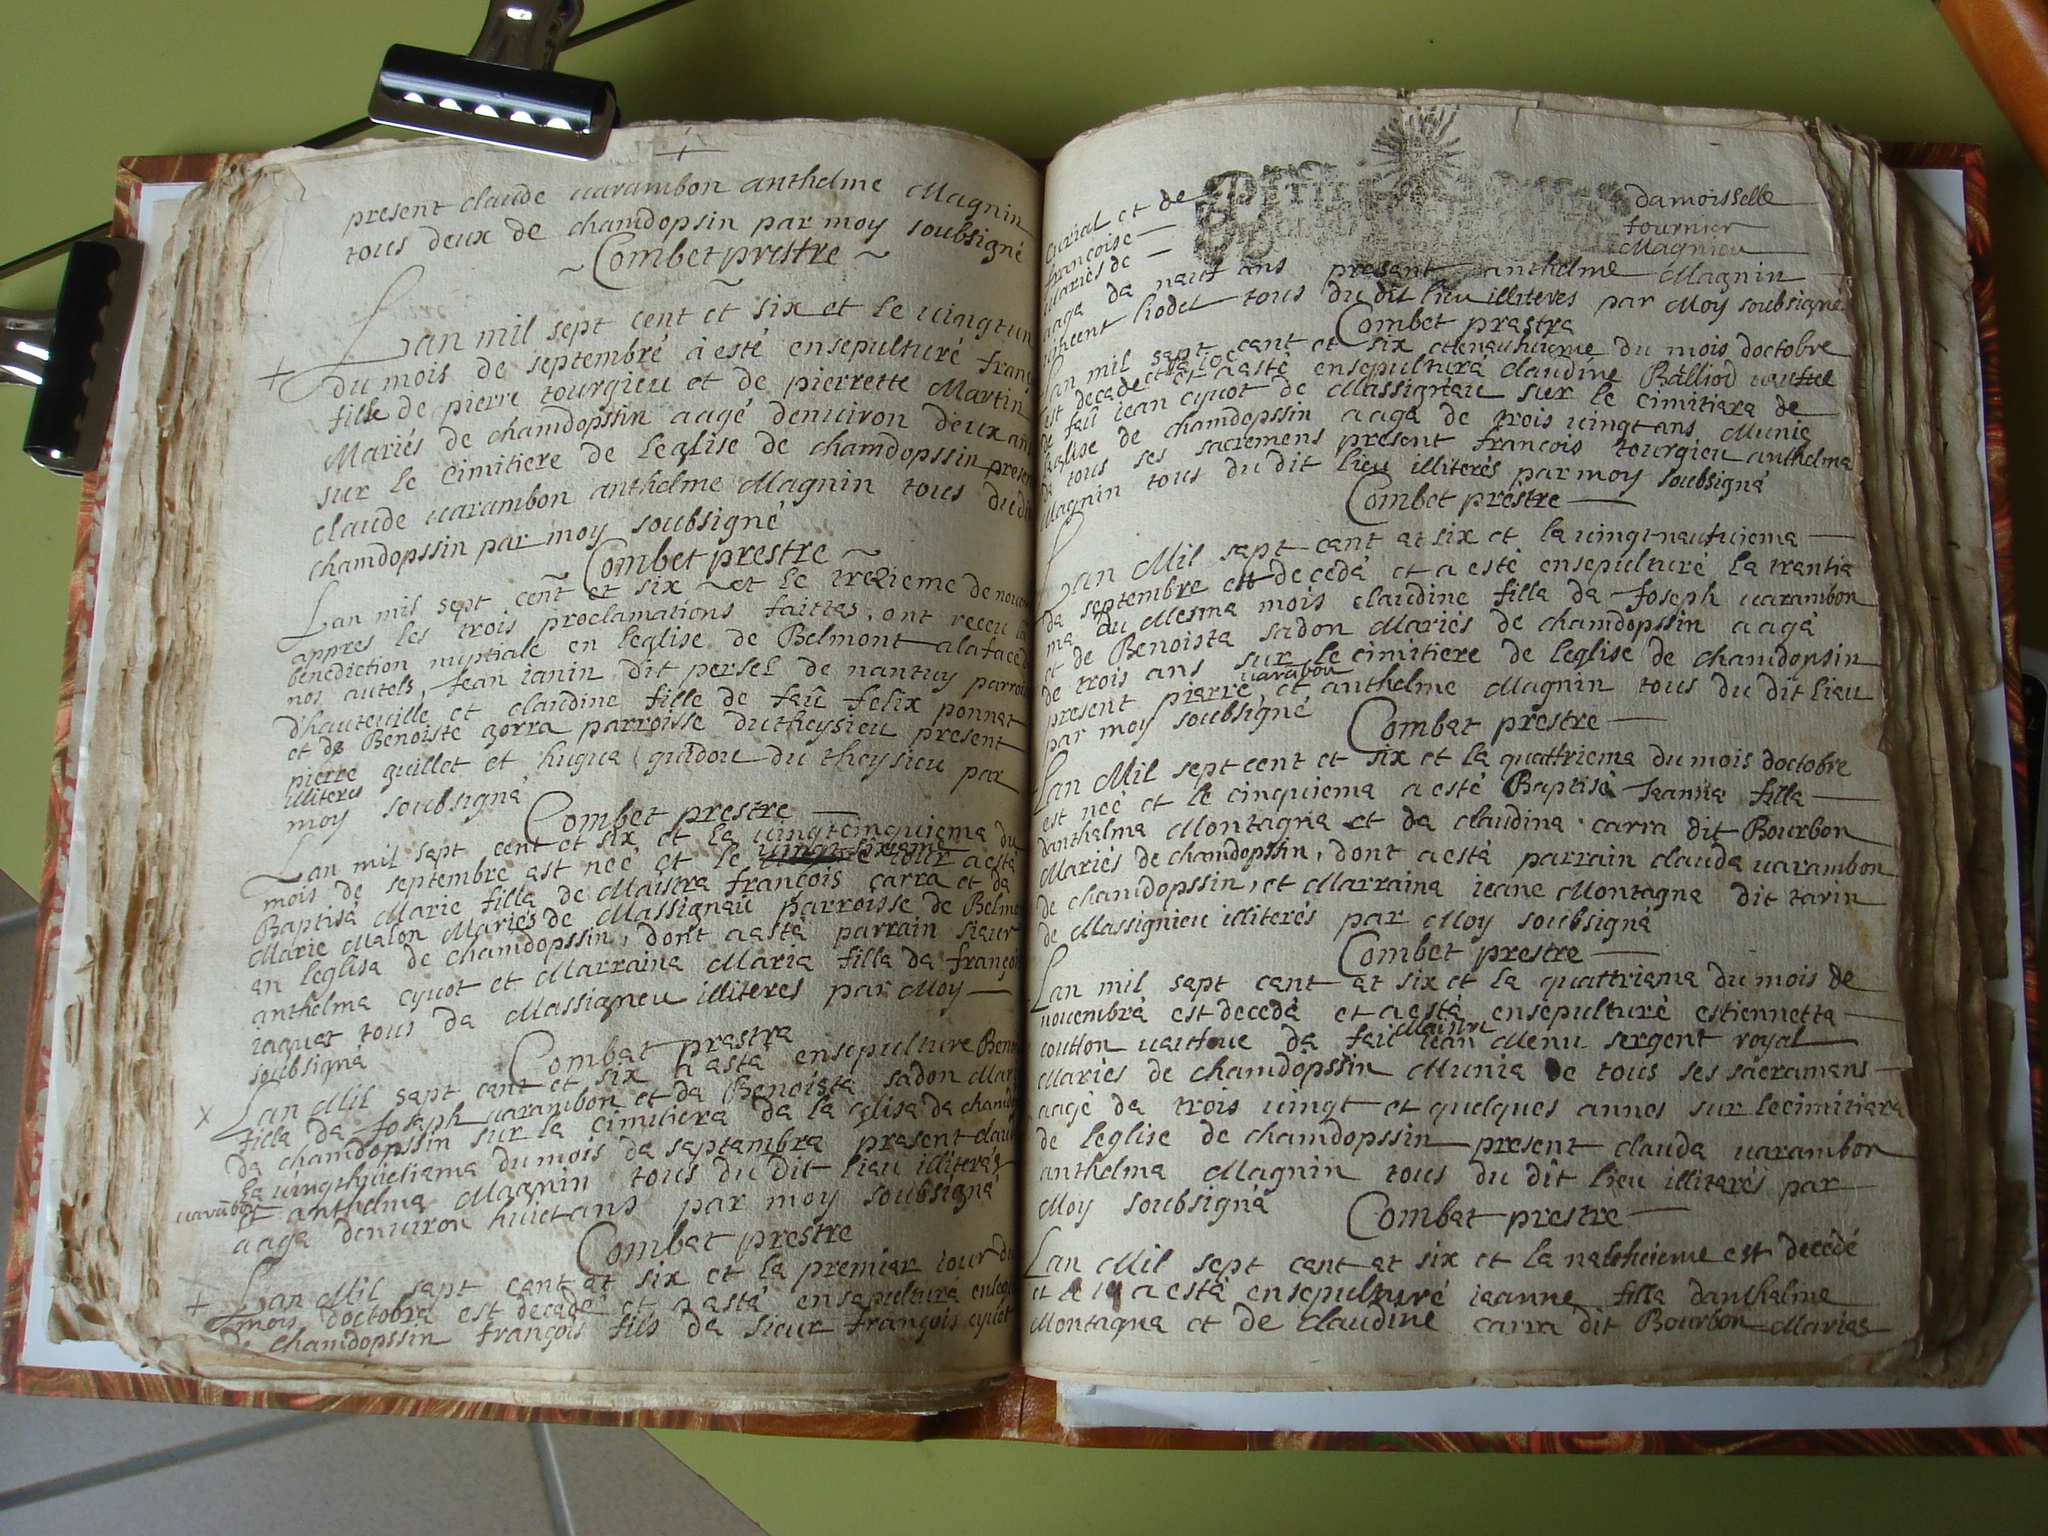 present claude varambon anthelme Magnin
tous deux de chamdopsin par moy soubsigné
~ Combet prestre ~
Lan mil sept cent et six et le vingt un
du mois de septembre à esté ensepulturé
fille de pierre tourgieu et de pierrette Martin
Mariés de chamdopssin aagé denuiron deux ans
sur le cimitiere de leglise de chamdopssin present
claude varambon anthelme Magnin tous du dit
chamdopssin par moy soubsigné
Combet prestre ~
Lan mil sept cent et six et le trezieme de
appres les trois proclamations faittes, ont receu la
benediction nuptiale en leglise de Belmont alaface de
nos autels, Jean ianin dit persel de nantuy
d'hauteuille et claudine fille de feû felix ponnet
et de Benoiste gorra parroisse dutheysieu present
pierre guillet et hugue guidou du theysieu par
illiteres
moy soubsigné
Combet prestre
Lan mil sept cent et six et la vingtcinquiema du
mois de septembre est neé et le vingt sixieme iour a esté
Baptisé Marie filla de Maistra françois carra et da
Marie Malon Mariés de Massigneu parroisse de
en leglise de chamdopssin, dont a esté parrain sieur
anthelma cyuot et Marraina Maria filla da françois
iaquet tous da Massigneu illiteres par Moy
soubsigné
Combet prestra
Lan Mil sapt cant et six a asta ensepulturé
filla da Joseph varambon et da Benoista sadon
da chamdopssin sur la cimitiera da la eglisa da
la vingthuictiama du mois da saptambra present
varãbon et anthelma Magnin tous du dit lieu illiterés
aaga denuiron huict ans par moy soubsigné
Combet prestre
Lan Mil sapt cant et six et la premier iour du
mois doctobra est decede et a asta ensapulturé
de chamdopssin françois fils da sieur françois cyuot
curial et de damoisselle
françoise fournier
Mariés de Magnieu
aaga da neuf ans present anthelme Magnin
vincent liodet tous du dit lieu illiteres par Moy soubsigné
Combet prastra
Lan mil sapt cant et six du mois doctobre
est decede et a asté ensepultura claudine Balliod veufue
de feû iean cyuot de Massigneu sur le cimitiera de
leglise de chamdopssin aaga de trois vingt ans Munie
de tous ses sacremens present françois tourgieu anthelma
Magnin tous du dit lieu illiterés par moy soubsigné
Combet prestre
Lan Mil sapt cant et six et la vingtneufuiema
da septembre est decedé et a esté ensepulturé la trantia
ma du Mesma mois claudine filla da Joseph varambon
et de Benoista sadon Mariés de chamdopssin aagé
de trois ans sur le cimitiere de leglise de chamdopsin
present piarre varãbon et anthelme Magnin tous du dit lieu
par moy soubsigné
Combat prestre
Lan Mil sept cent et six et la quattriema du mois doctobre
est neé et le cinquiema a esté Baptisé Jeanna filla
danthelma Montagna et da claudina carra dit Bourbon
Mariés de chamdopssin, dont a esté parrain clauda varambon
de chamdopssin, et Marraina ieane Montagna dit tarin
de Massignieu illiterés par Moy soubsigné
Combet prestre
Lan mil sapt cant et six et la quattriama du mois de
nouembré est decedé et a esté ensepulturé estiennetta
coutlon vaufue da feû Maistre iean Menu sergent royal
Mariés de chamdopssin Munia de tous ses sacramans
aagé da trois vingt et quelques annes sur lecimitiara
de leglise de chamdopssin present clauda varambon
anthelma Magnin tous du dit lieu illiterés par
Moy soubsigné
Combat prestre
Lan Mil sept cant et six et la est decedé
et a esté ensepulturé ieanne filla danthelme
Montagna et de claudine carra dit Bourbon Mariés